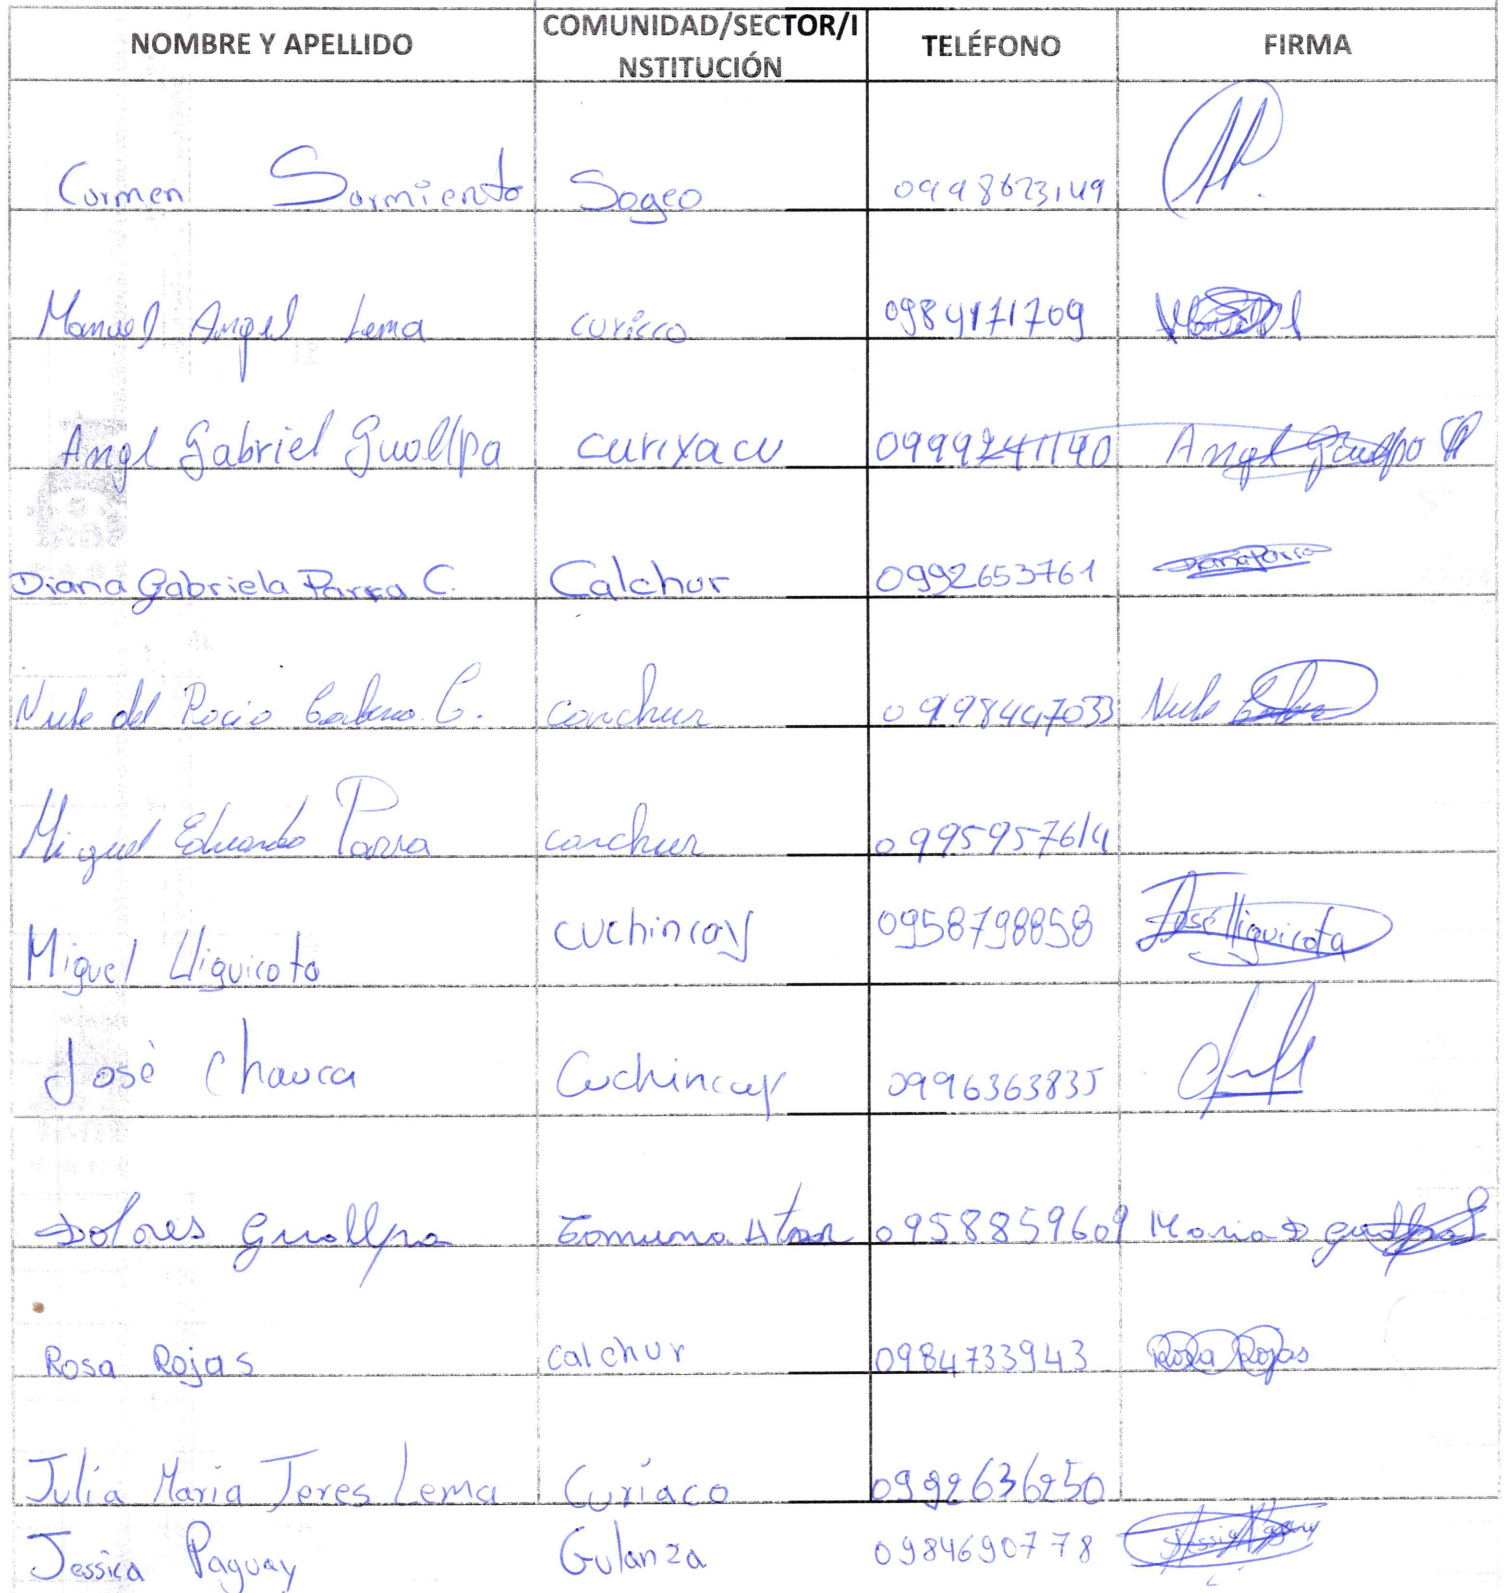 NOMBRE Y APELLIDO COMUNIDAD/SECTOR/I NSTITUCIÓN TELÉFONO FIRMA
Carmen Sarmiento Sageo 0998623149
Manuel Angel Lema curicco 0984171709 Manuel
Angl Gabriel Guallpa curixacu 0999241190 Angl Guallpa
Diana Gabriela Parra C. Calchur 0992653761 Diana Parra
del Rocio C. conchur 0998447033
Miguel Eduardo Parra conchur 0995957614
Miguel Lliguicota cuchincay 0958798858 José lliguicota
José Chauca Cuchincay 0996363835
Dolores Guallpa Comuna 0958859609 Maria D guallpa
Rosa Rojas calchur 0984733943 Rosa Rojas
Julia Maria Teres Lema Curiaco 0992636250
Jessica Paguay Gulanza 0984690778